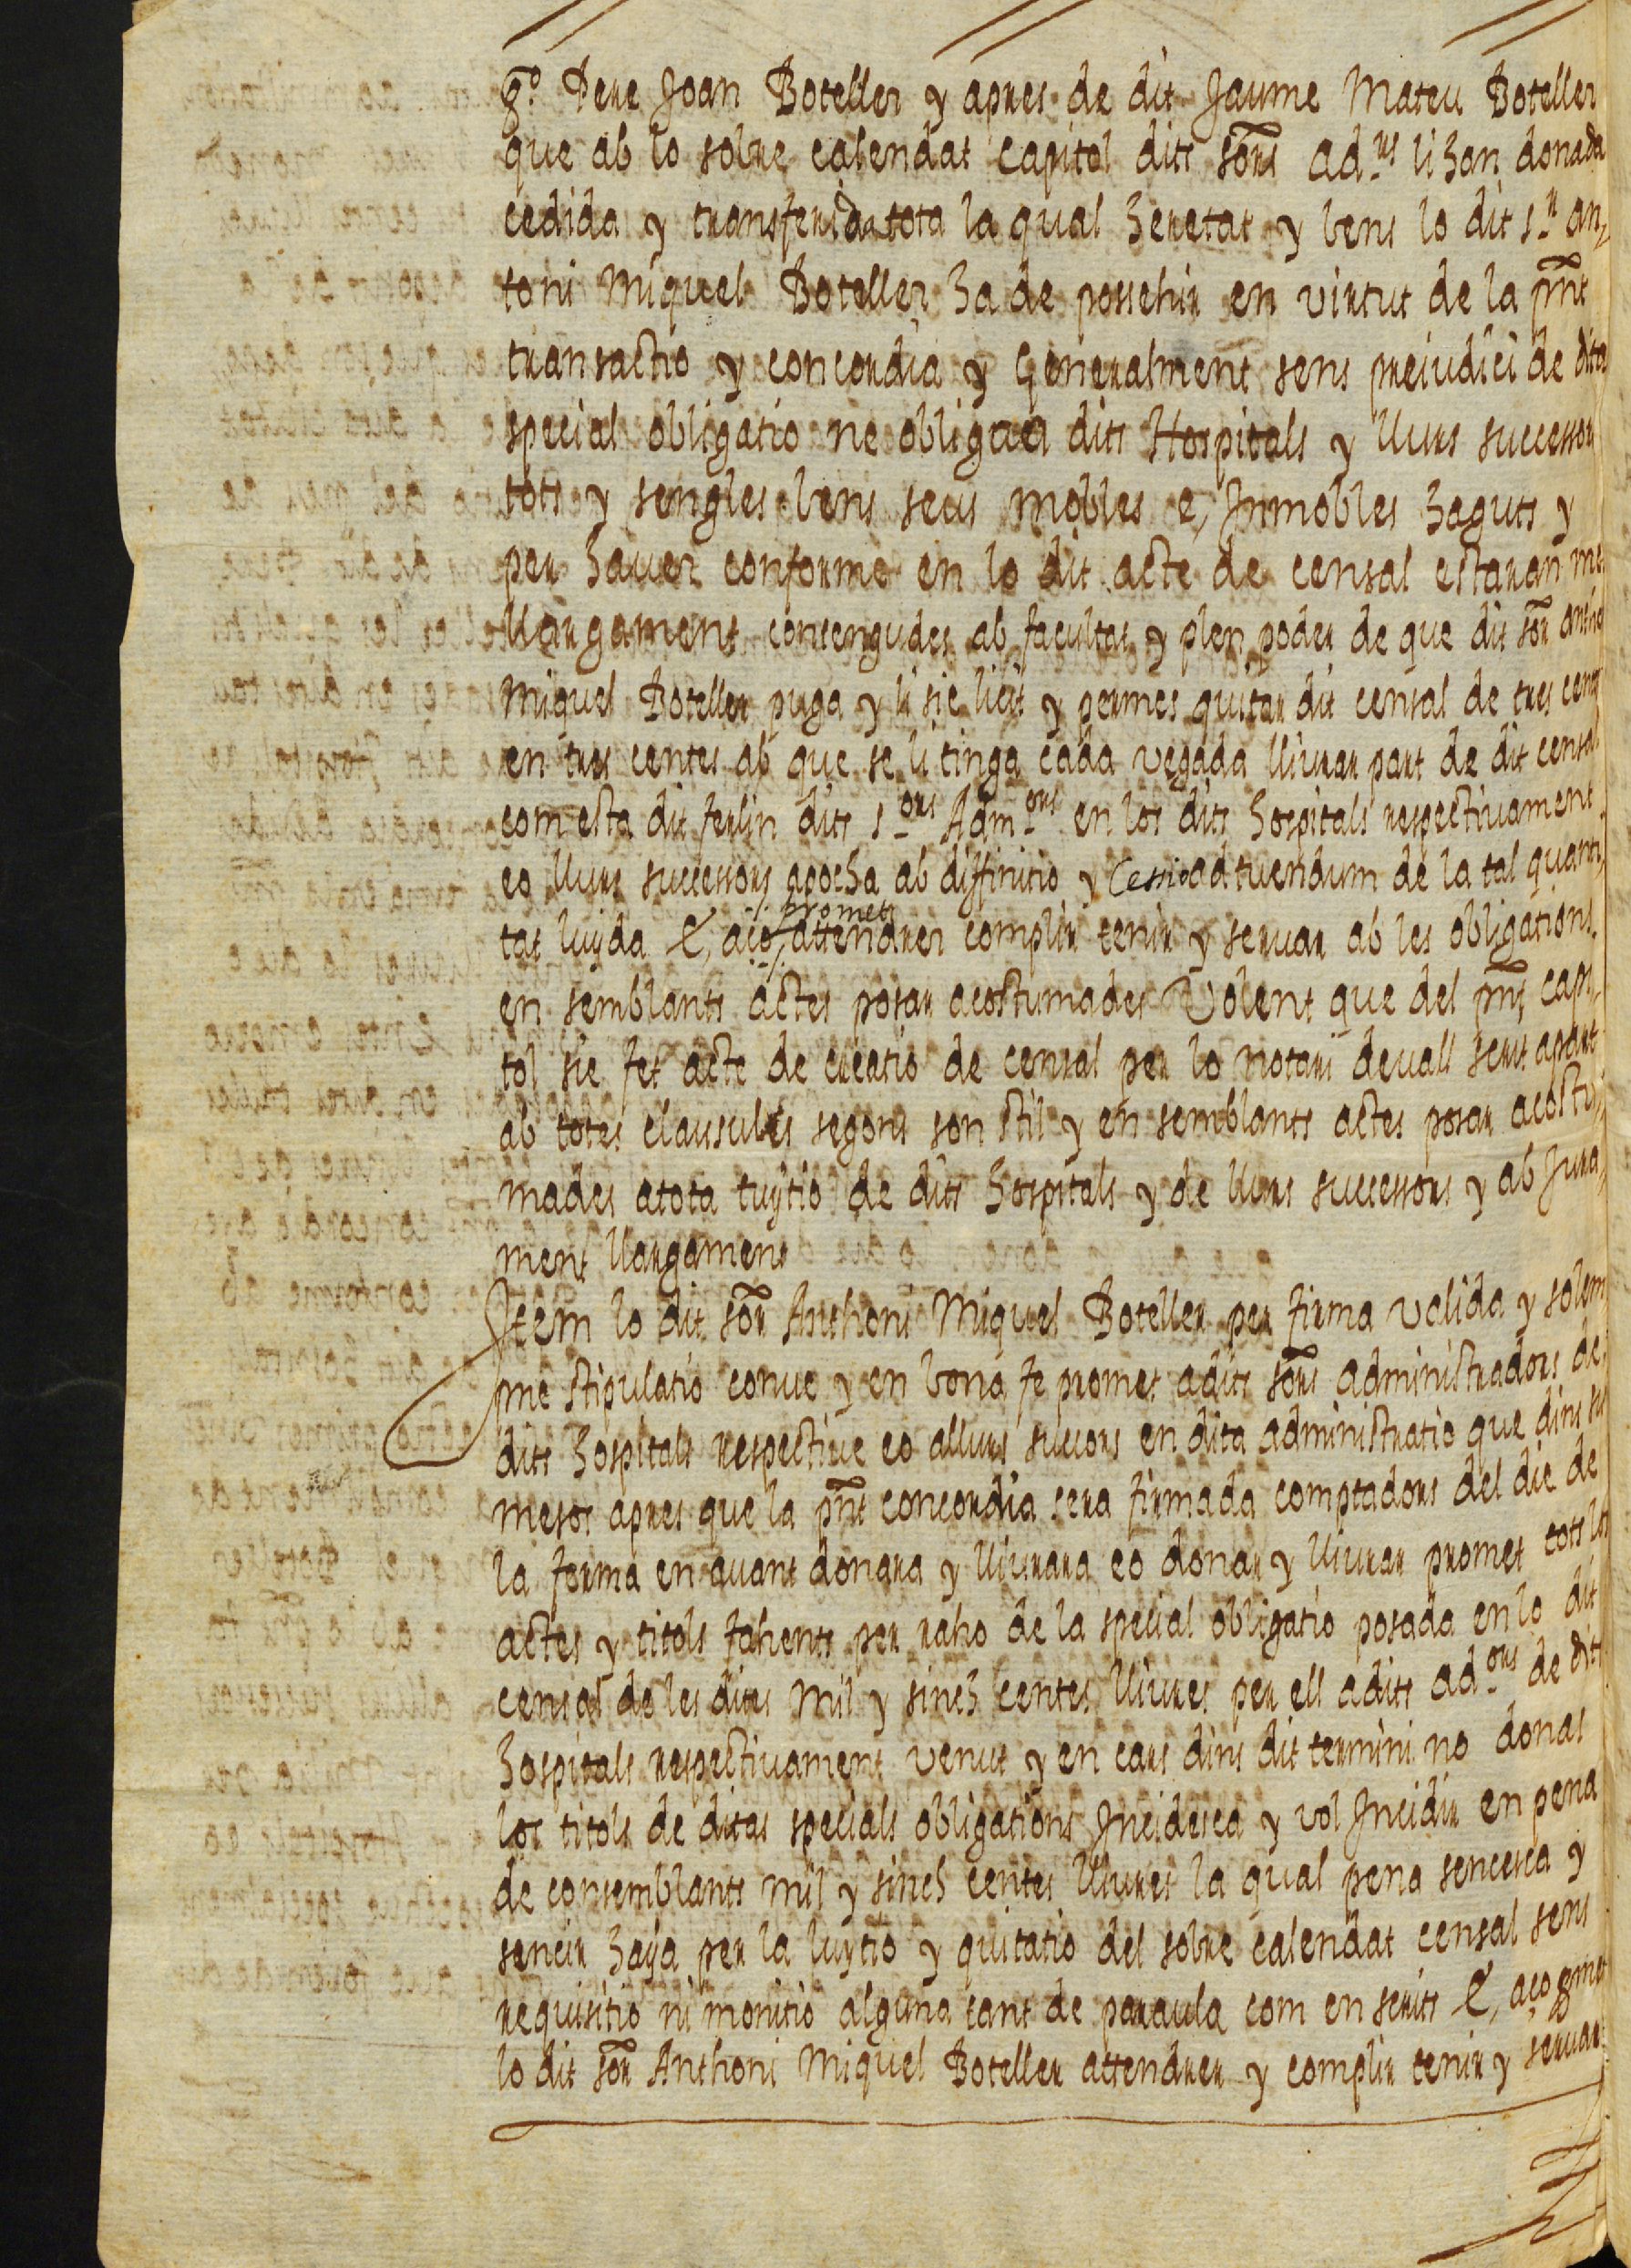 qº Pere Joan Boteller y apres de dit Jaume Mateu Boteller
que ab lo sobre calendat capitol dits sors ad.rs li han donada
cedida y transferida tota la qual heretat y bens lo dit s.r an
toni Miquel Boteller ha de possehir en virtut de la pnt
transactio y concordia y Generalment sens preiudici de dita
special obligatio ne obliguen dits Hospitals y llurs successors
tots y sengles bens seus mobles e, Inmobles haguts y
per hauer conforme en lo dit acte de censal estaran mes
llargament contengudes ab facultat y plen poder de que dit sor antho
Miquel Boteller puga y li sie licit y permes quitar dit censal de tres cent
en tres centes ab que se li tinga cada vegada lliurar part de dit censal
com esta dit ferlin dits s.ors Adm.ors en los dits hospitals respectiuament
eo llurs successors apocha ab diffinitio y Cessio ad tuendum de la tal quanti
tat luyda E, aço promet attendrer complir tenir y seruar ab les obligations
en semblants actes posar acostumades Volent que del pnt capi
tol sie fet acte de creatio de censal per lo notari deuall scrit apart
ab totes clausules segons son stil y en semblants actes posar acostu
mades atota tuytio de dits hospitals y de llurs successors y ab Jura
ment llargament
Item lo dit sor Anthoni Miquel Boteller per firma valida y solem
pne stipulatio conue y en bona fe promet adits sors administradors de
dits hospitals respectiue eo allurs succors en dita administratio que dins sis
mesos apres que la pnt concordia sera firmada comptadors del die de
la forma en auant donara y lliurara eo donar y lliurar promet tots los
actes y titols fahents per raho de la special obligatio posada en lo dit
censal de les dites Mil y sinch centes lliures per ell adits ad.ors de dits
hospitals respectiuament venut y en cars dins dit termini no donas
los titols de ditas specials obligations Incidesca y vol Incidir en pena
de consemblants mil y sinch centes lliures la qual pena sencesca y
sencir haya per la luytio y quitatio del sobre calendat censal sens
requisitio ni monitio alguna tant de paraula com en scrits E, aço promet
lo dit sor Anthoni Miquel Boteller attendrer y complir tenir y seruar